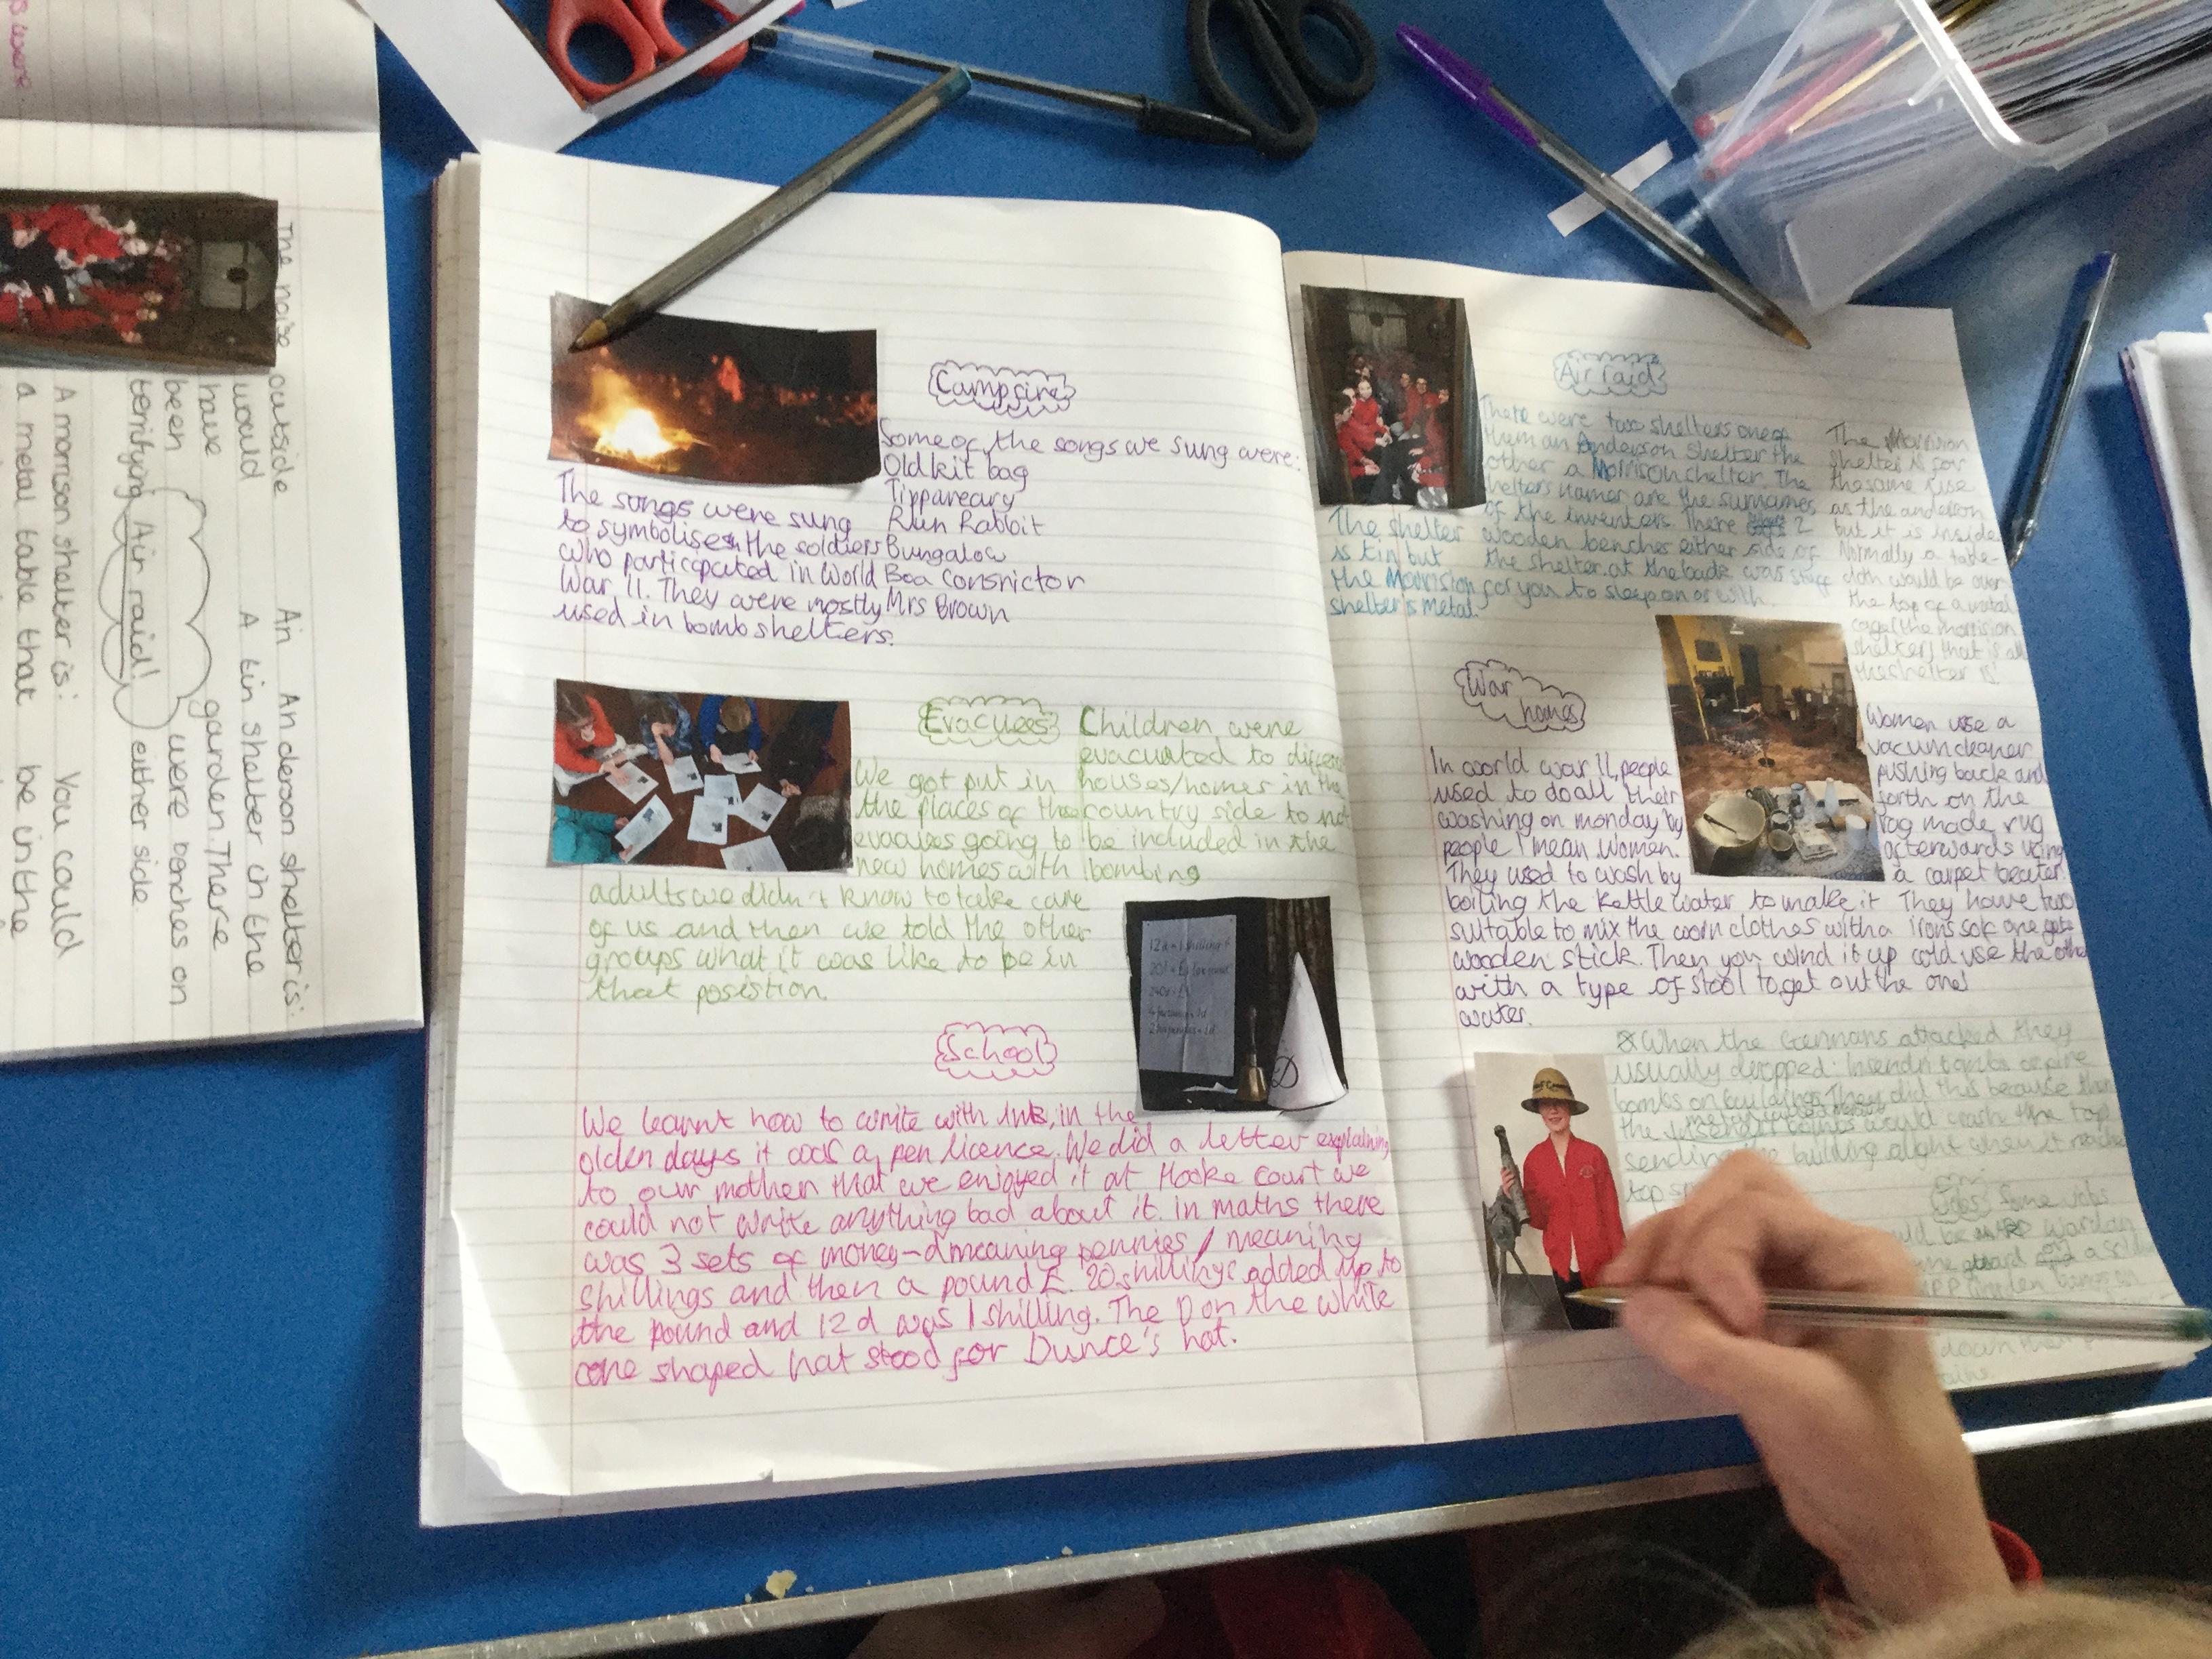 s were
The noise
outside
would
have
been
terrifying
Air raid!
An Anderson shelter is:
A tin shelter in the
garden. There
were benches on
either side.
A morrison shelter is: You could
a metal table that be in the
Campfire
Some of the songs we sung were:
Old kit bag
Tippareary
Run Rabbit
Bungalow
Boa Consrictor
Mrs Brown
The songs were sung
to symbolise the soldiers
who participated in World
War II. They were mostly
used in bomb shelters.
Evacuees
We got put in
the places of the
evacuees going to
new homes with
adults we didn't know to take care
of us and then we told the other
groups what it was like to be in
that posistion.
Children were
evacuated to
houses/homes in the
country side to not
be included in the
bombing
12d = 1 shilling
School
We learnt how to write with ink, in the
olden days it was a pen licence. We did a letter explaining
to our mother that we enjoyed it at Hooke Court we
could not write anything bad about it. in maths there
was 3 sets of money-d meaning pennies / meaning
shillings and then a pound £. 20 shillings added up to
the pound and 12 d was 1 shilling. The D on the white
cone shaped hat stood for Dunce's hat.
D
Air raid
There were two shelters one of
them an Anderson Shelter the
other a Morrison shelter. The
shelters names are the surnames
of the inventors. There 2
wooden benches either side of
the shelter. at the back was stuff
for you to sleep on or with.
The shelter
is tin but
the Morrision
shelter's metal.
The Morrision
shelter is for
the same use
as the anderson
but it is inside
Normally a table-
cloth would be over
the top of a metal
cage (the morrision
shelter) that is all
the shelter is!
War
homes
In world war II, people
used to do all their
washing on monday by
people I mean women.
They used to wash by
boiling the kettle water to make it
suitable to mix the worn clothes with a
wooden stick. Then you wind it up
with a type of stool to get out the
water.
Women use a
vacum cleaner
pushing back and
forth on the
rag made rug
afterwards using
a carpet beater.
They have two
irons so one gets
cold use the other
one!
When the Germans attacked they
usually dropped:
bombs on They did this because
the would crash the top
sending building alight when it
top
Jobs Some jobs
be Warden